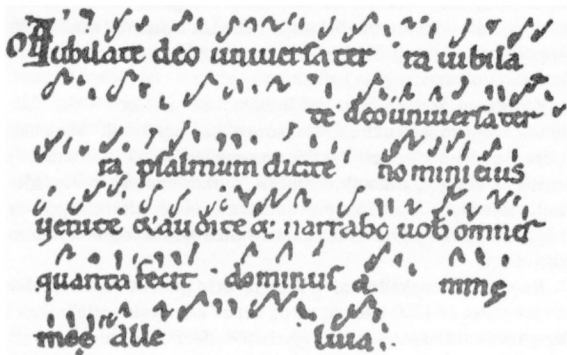 Iubilate deo universa ter ra iubila
te deo universa ter
ra psalmum dicite nomini eius
venite & audite & narrabo vob omnis
quanta fecit dominus a nimę
męę alle luia :